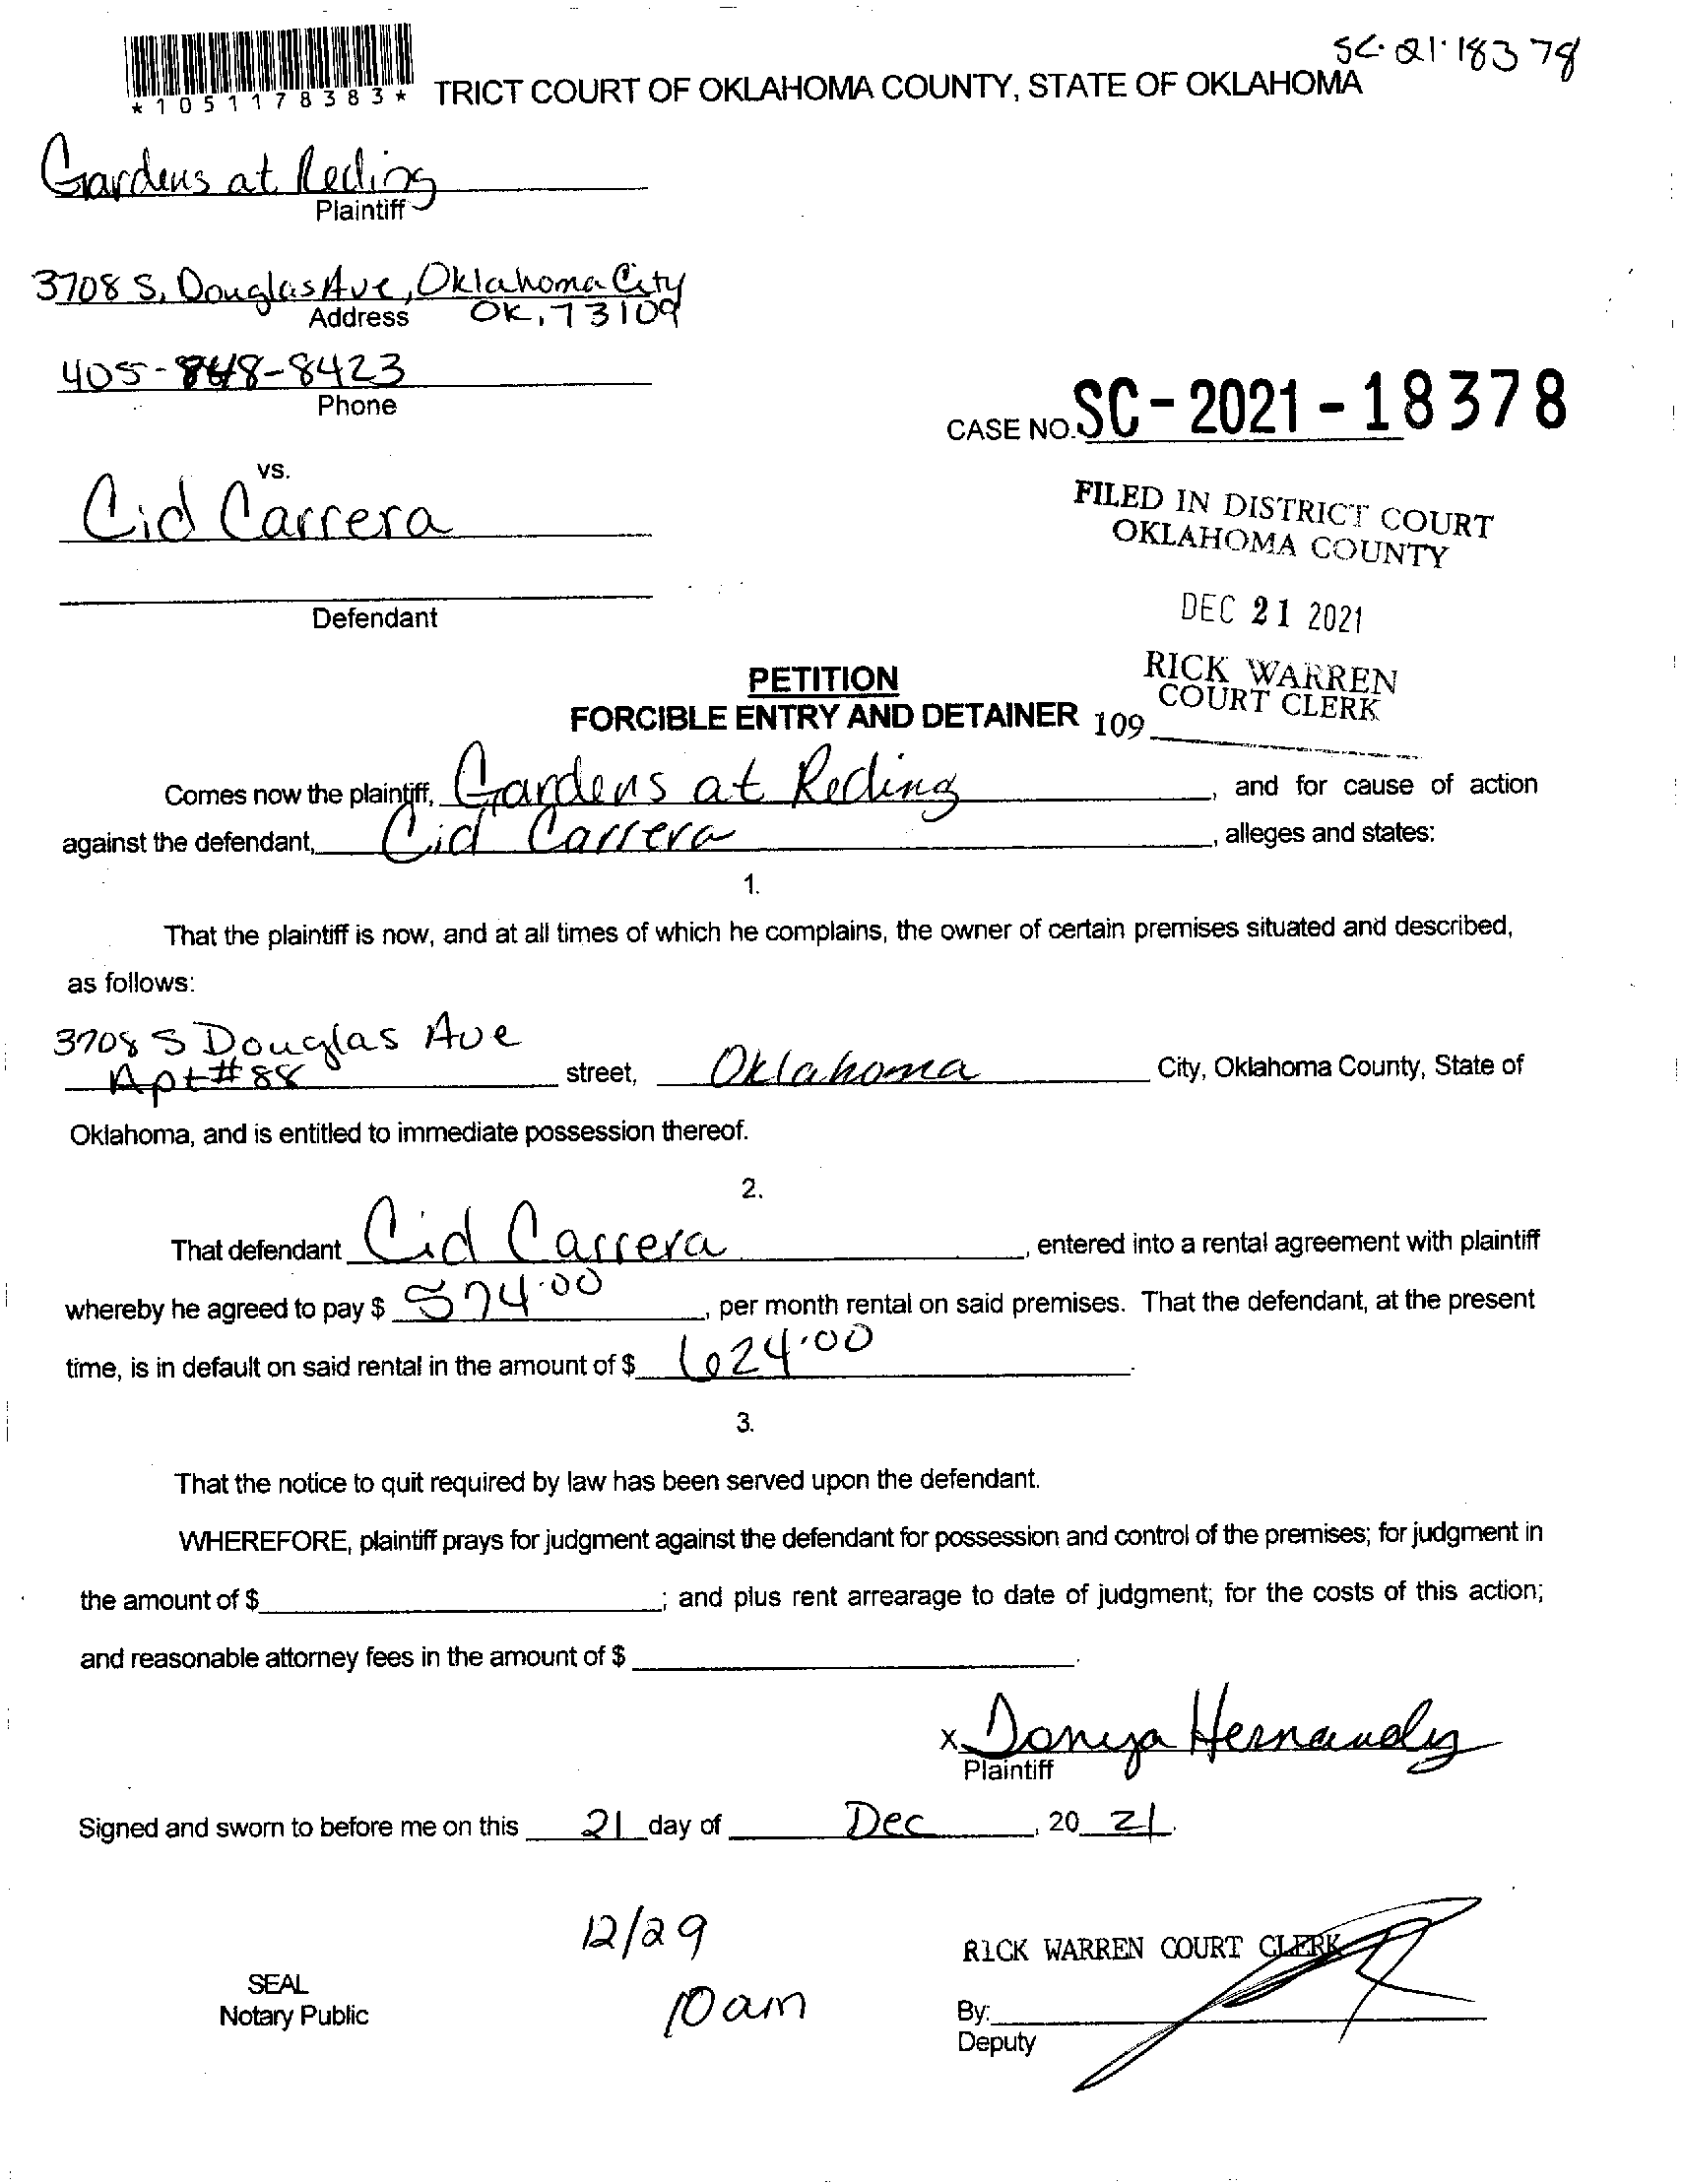 SC-21-18378
*1051178383* TRICT COURT OF OKLAHOMA COUNTY, STATE OF OKLAHOMA
Gardens at Reding
Plaintiff
3708 S. Douglas Ave, Oklahoma City
Address OK, 73109
405-848-8423
Phone
CASE NO. SC-2021-18378
vs.
Cid Carrera
FILED IN DISTRICT COURT
OKLAHOMA COUNTY
Defendant
DEC 21 2021
RICK WARREN
COURT CLERK
109
PETITION
FORCIBLE ENTRY AND DETAINER
Comes now the plaintiff, Gardens at Reding, and for cause of action
against the defendant, Cid Carrera, alleges and states:
1.
That the plaintiff is now, and at all times of which he complains, the owner of certain premises situated and described,
as follows:
3708 S Douglas Ave
Apt#88 street, Oklahoma City, Oklahoma County, State of
Oklahoma, and is entitled to immediate possession thereof.
2.
That defendant Cid Carrera, entered into a rental agreement with plaintiff
whereby he agreed to pay $ 574.00, per month rental on said premises. That the defendant, at the present
time, is in default on said rental in the amount of $ 624.00.
3.
That the notice to quit required by law has been served upon the defendant.
WHEREFORE, plaintiff prays for judgment against the defendant for possession and control of the premises; for judgment in
the amount of $ ; and plus rent arrearage to date of judgment; for the costs of this action;
and reasonable attorney fees in the amount of $ .
x Donya Hernandez
Plaintiff
Signed and sworn to before me on this 21 day of Dec, 20 21.
12/29
10am
SEAL
Notary Public
RICK WARREN COURT CLERK
By:
Deputy